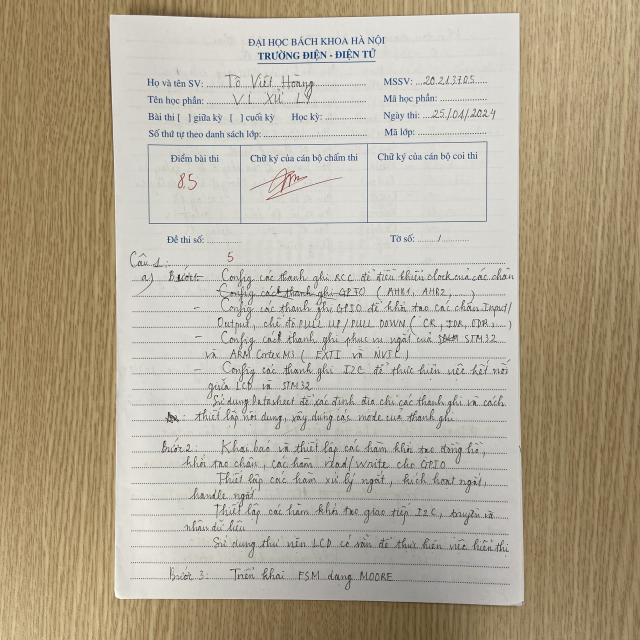 ĐẠI HỌC BÁCH KHOA HÀ NỘI
TRƯỜNG ĐIỆN - ĐIỆN TỬ
Họ và tên SV: Tô Việt Hoàng MSSV: 20213705
Tên học phần: VI XỬ LÝ Mã học phần:
Bài thi [ ] giữa kỳ [ ] cuối kỳ Học kỳ: Ngày thi: 25/01/2024
Số thứ tự theo danh sách lớp: Mã lớp:
Điểm bài thi Chữ ký của cán bộ chấm thi Chữ ký của cán bộ coi thi
8,5
Đề thi số: Tờ số: /
Câu 1: 5
a) Bước 1: Config các thanh ghi RCC để điều khiển clock của các chân
Config các thanh ghi GPIO (AHB1, AHB2,
- Config các thanh ghi GPIO để khởi tạo các chân Input/
Output, chế độ PULL UP/PULL DOWN (CR, IDR, ODR,...)
- Config các thanh ghi phục vụ ngắt của STM32
và ARM Cortex M3 (EXTI và NVIC)
- Config các thanh ghi I2C để thực hiện việc kết nối
giữa LCD và STM32
Sử dụng Datasheet để xác định địa chỉ các thanh ghi và cách
thiết lập nội dung, xây dựng các mode của thanh ghi
Bước 2: Khai báo và thiết lập các hàm khởi tạo đồng hồ,
khởi tạo chân, các hàm read/write cho GPIO
Thiết lập các hàm xử lý ngắt, kích hoạt ngắt,
handle ngắt
Thiết lập các hàm khởi tạo giao tiếp I2C, truyền và
nhận dữ liệu
Sử dụng thư viện LCD có sẵn để thực hiện việc hiển thị
Bước 3: Triển khai FSM dạng MOORE